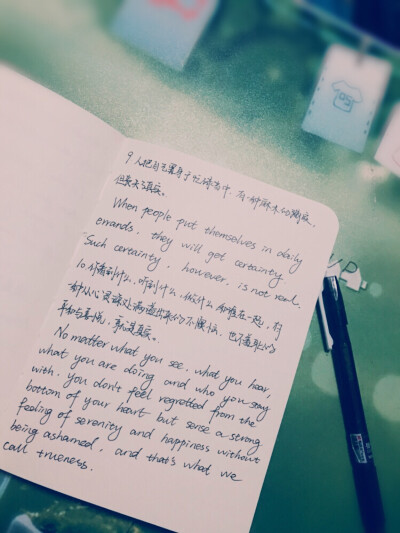 9 人把自己置身于忙碌当中，有一种麻木的踏实，
但丧失了真实。
When people put themselves in daily
errands, they will get certainty.
Such certainty, however, is not real.
10 你看到什么，听到什么，做什么，和谁在一起，有
一种从心灵深处满溢出来的不懊悔、也不羞耻的
平和与喜悦，就是真实。
No matter what you see, what you hear,
what you are doing and who you stay
with. you don't feel regretted from the
bottom of your heart but sense a strong
feeling of serenity and happiness without
being ashamed, and that's what we
call trueness.